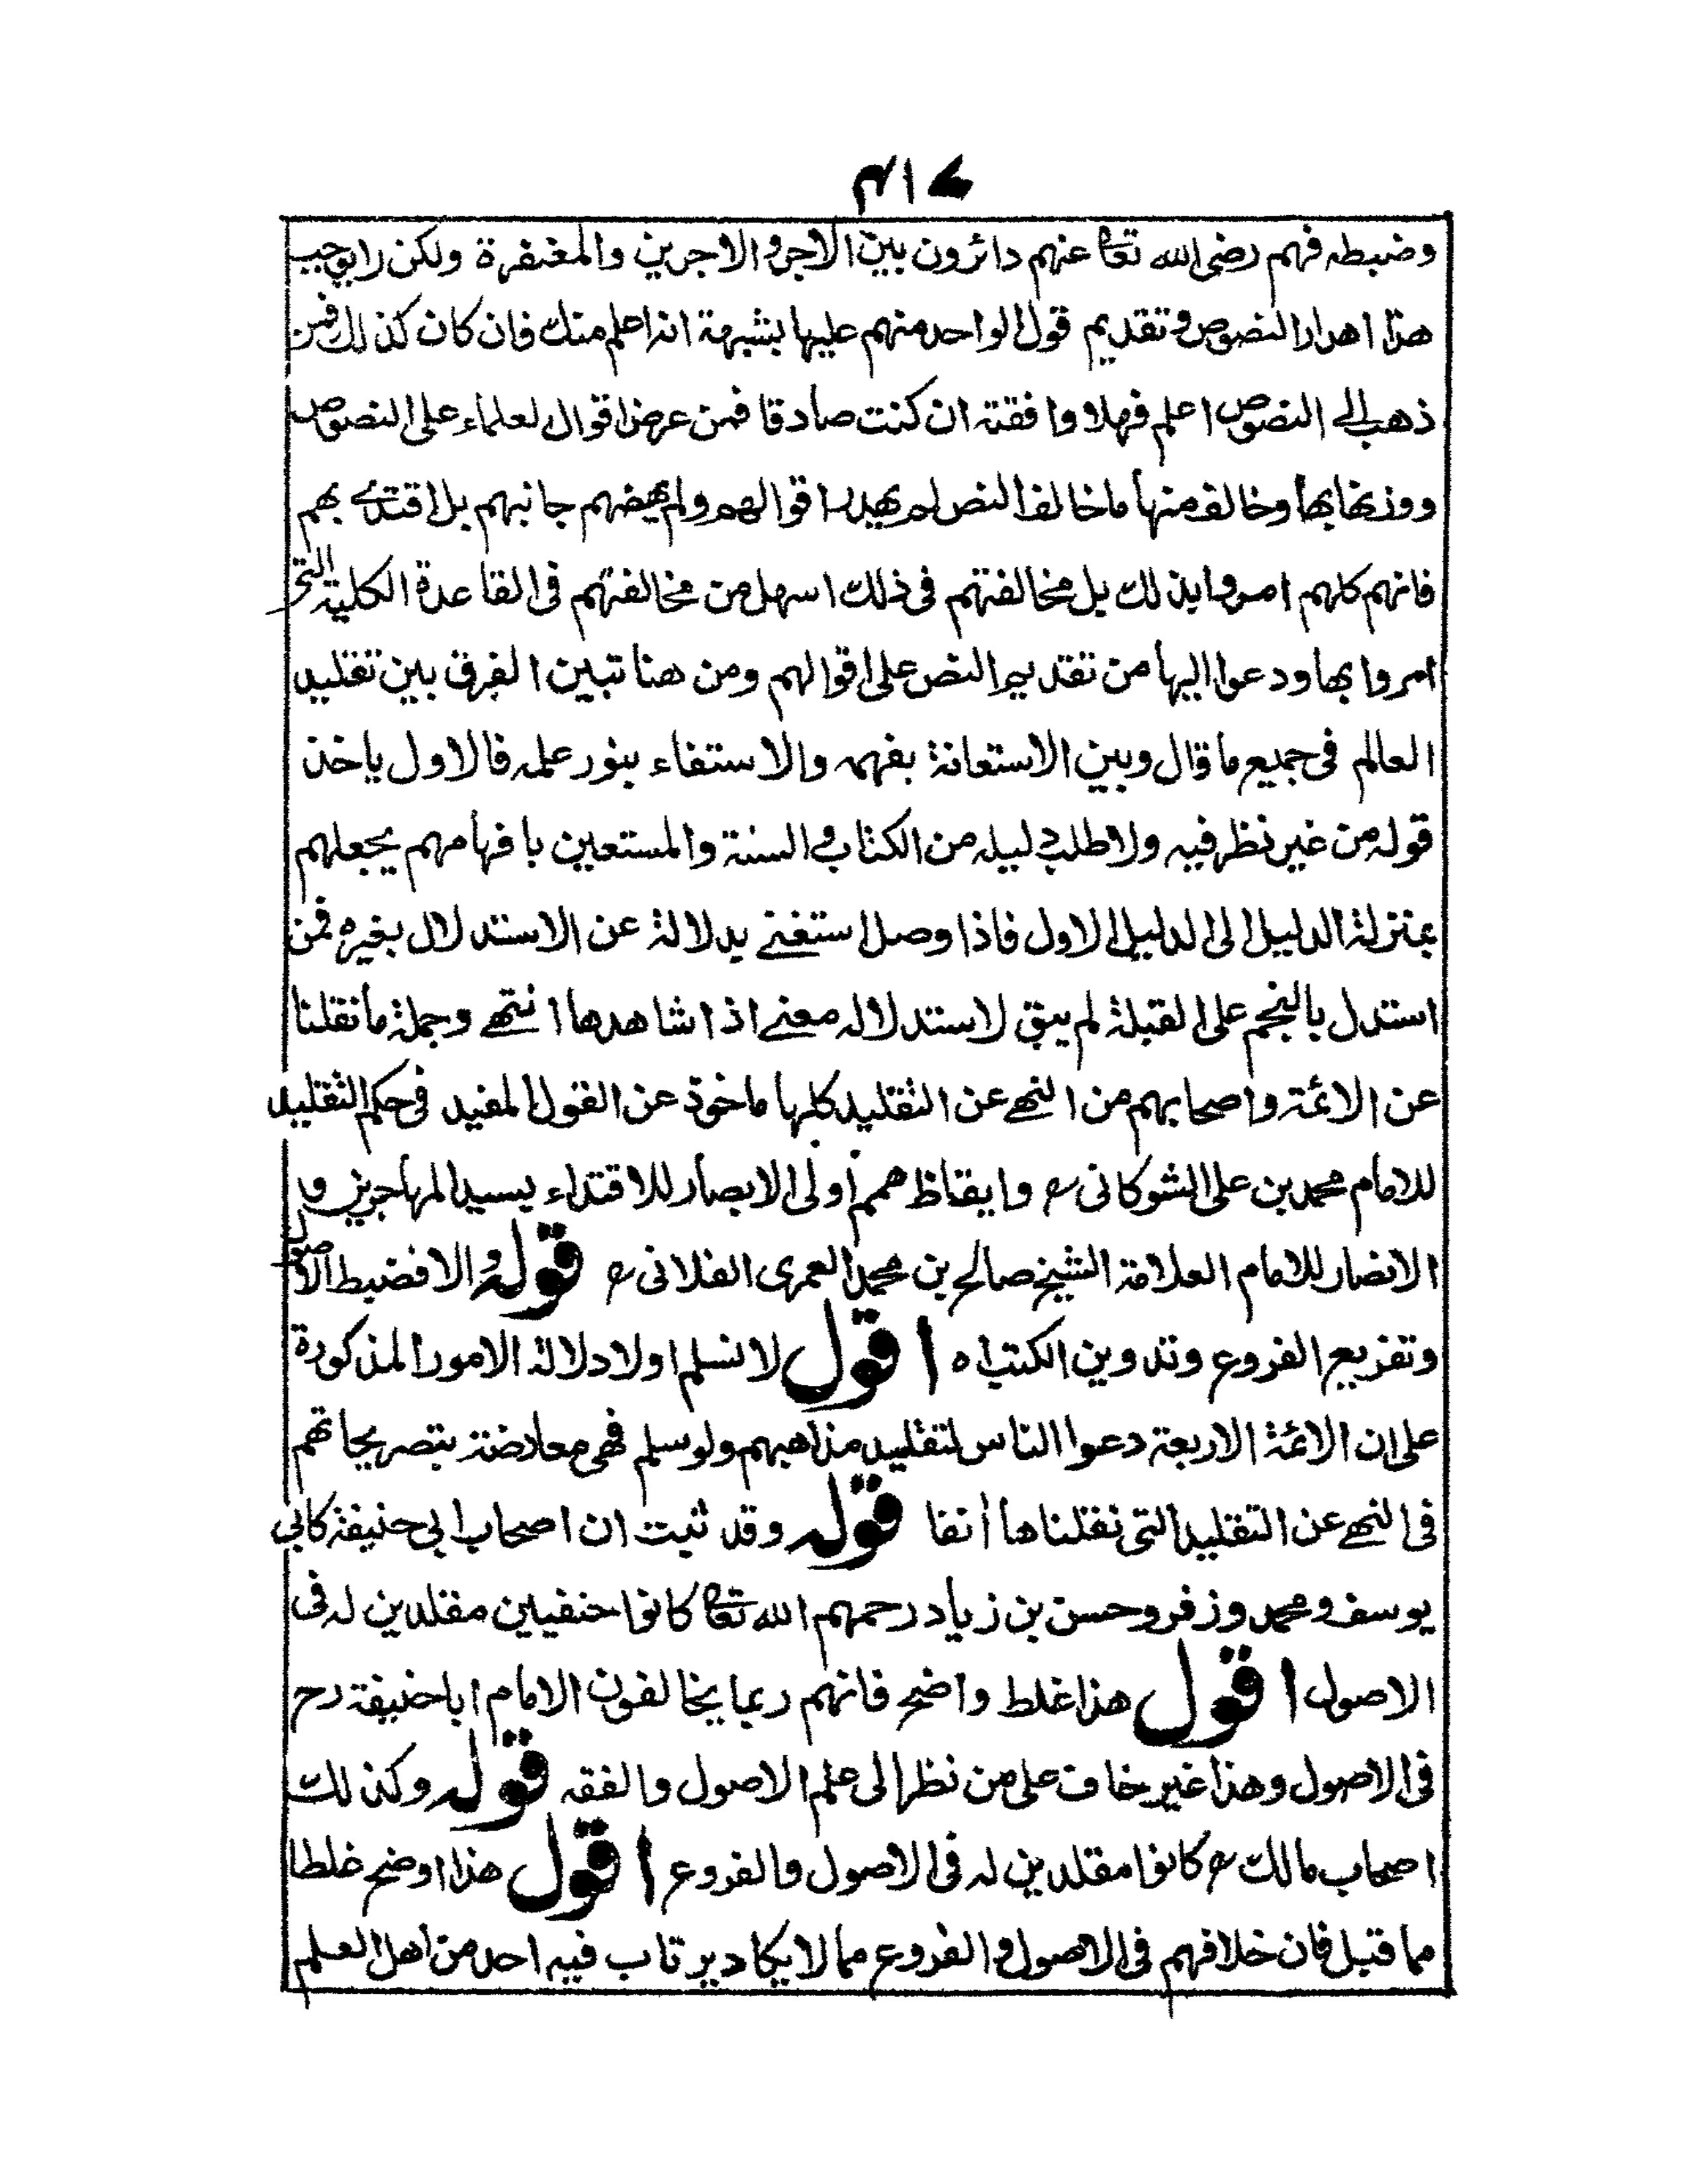 ۴۱۷
وضبطه فهم رضى الله تعا عنهم دائرون بين الاجر والاجرين والمغفرة ولكن لا يوجب
هذا اهدار النصوص وتقديم قول الواحد منهم عليها بشبهة انه اعلم منك فان كان كذلك فمن
ذهب الے النصوص اعلم فهلا وافقته ان كنت صادقا فمن عرض اقوال العلماء على النصوص
ووزنها بها وخالف منها ما خالف النص لم يهدر اقوالهم ولم يهضهم جانبهم بل اقتدے بهم
فانهم كلهم امروا بذلك بل مخالفتهم فى ذلك اسهل من مخالفتهم فى القاعدة الكلية التى
امروا بها ودعوا اليها من تقديم النص على اقوالهم ومن هنا تبين الفرق بين تقليد
العالم فى جميع ما قال وبين الاستعانة بفهمه والاستفاء بنور علمه فالاول ياخذ
قوله من غير نظر فيه ولا طلب دليله من الكتاب والسنة والمستعين بافهامهم يجعلهم
بمنزلة الدليل الى الدليل الاول فاذا وصل استغنے بدلالة عن الاستدلال بغيره فمن
استدل بالنجم على القبلة لم يبق لاستدلاله معنے اذا شاهدها انتهے وجملة ما نقلنا
عن الائمة واصحابهم من النهے عن التقليد كلها ماخوذ عن القول المفيد فى حكم التقليد
للامام محمد بن على الشوكانى رح وايقاظ همم أولى الابصار للاقتداء بسيد المهاجرين و
الانصار للامام العلامة الشيخ صالح بن محمد العمرى الفلانى رح قوله والا فضبط الاصول
وتفريع الفروع وتدوين الكتب اه اقول لا نسلم اولا دلالة الامور المذكورة
على ان الائمة الاربعة دعوا الناس لتقليد مذاهبهم ولو سلم فهى معارضة بتصريحاتهم
فى النهے عن التقليد التى نقلناها أنفا قوله وقد ثبت ان اصحاب ابى حنيفة كابى
يوسف ومحمد وزفر وحسن بن زياد رحمهم الله تعا كانوا حنفيين مقلدين له فى
الاصول اقول هذا غلط واضح فانهم ربما يخالفون الامام ابا حنيفة رح
فى الاصول وهذا غير خاف على من نظر الى علم الاصول والفقه قوله وكذلك
اصحاب مالك رح كانوا مقلدين له فى الاصول والفروع اقول هذا اوضح غلطا
مما قبل فان خلافهم فى الاصول والفروع مما لا يكاد يرتاب فيه احد من اهل العلم